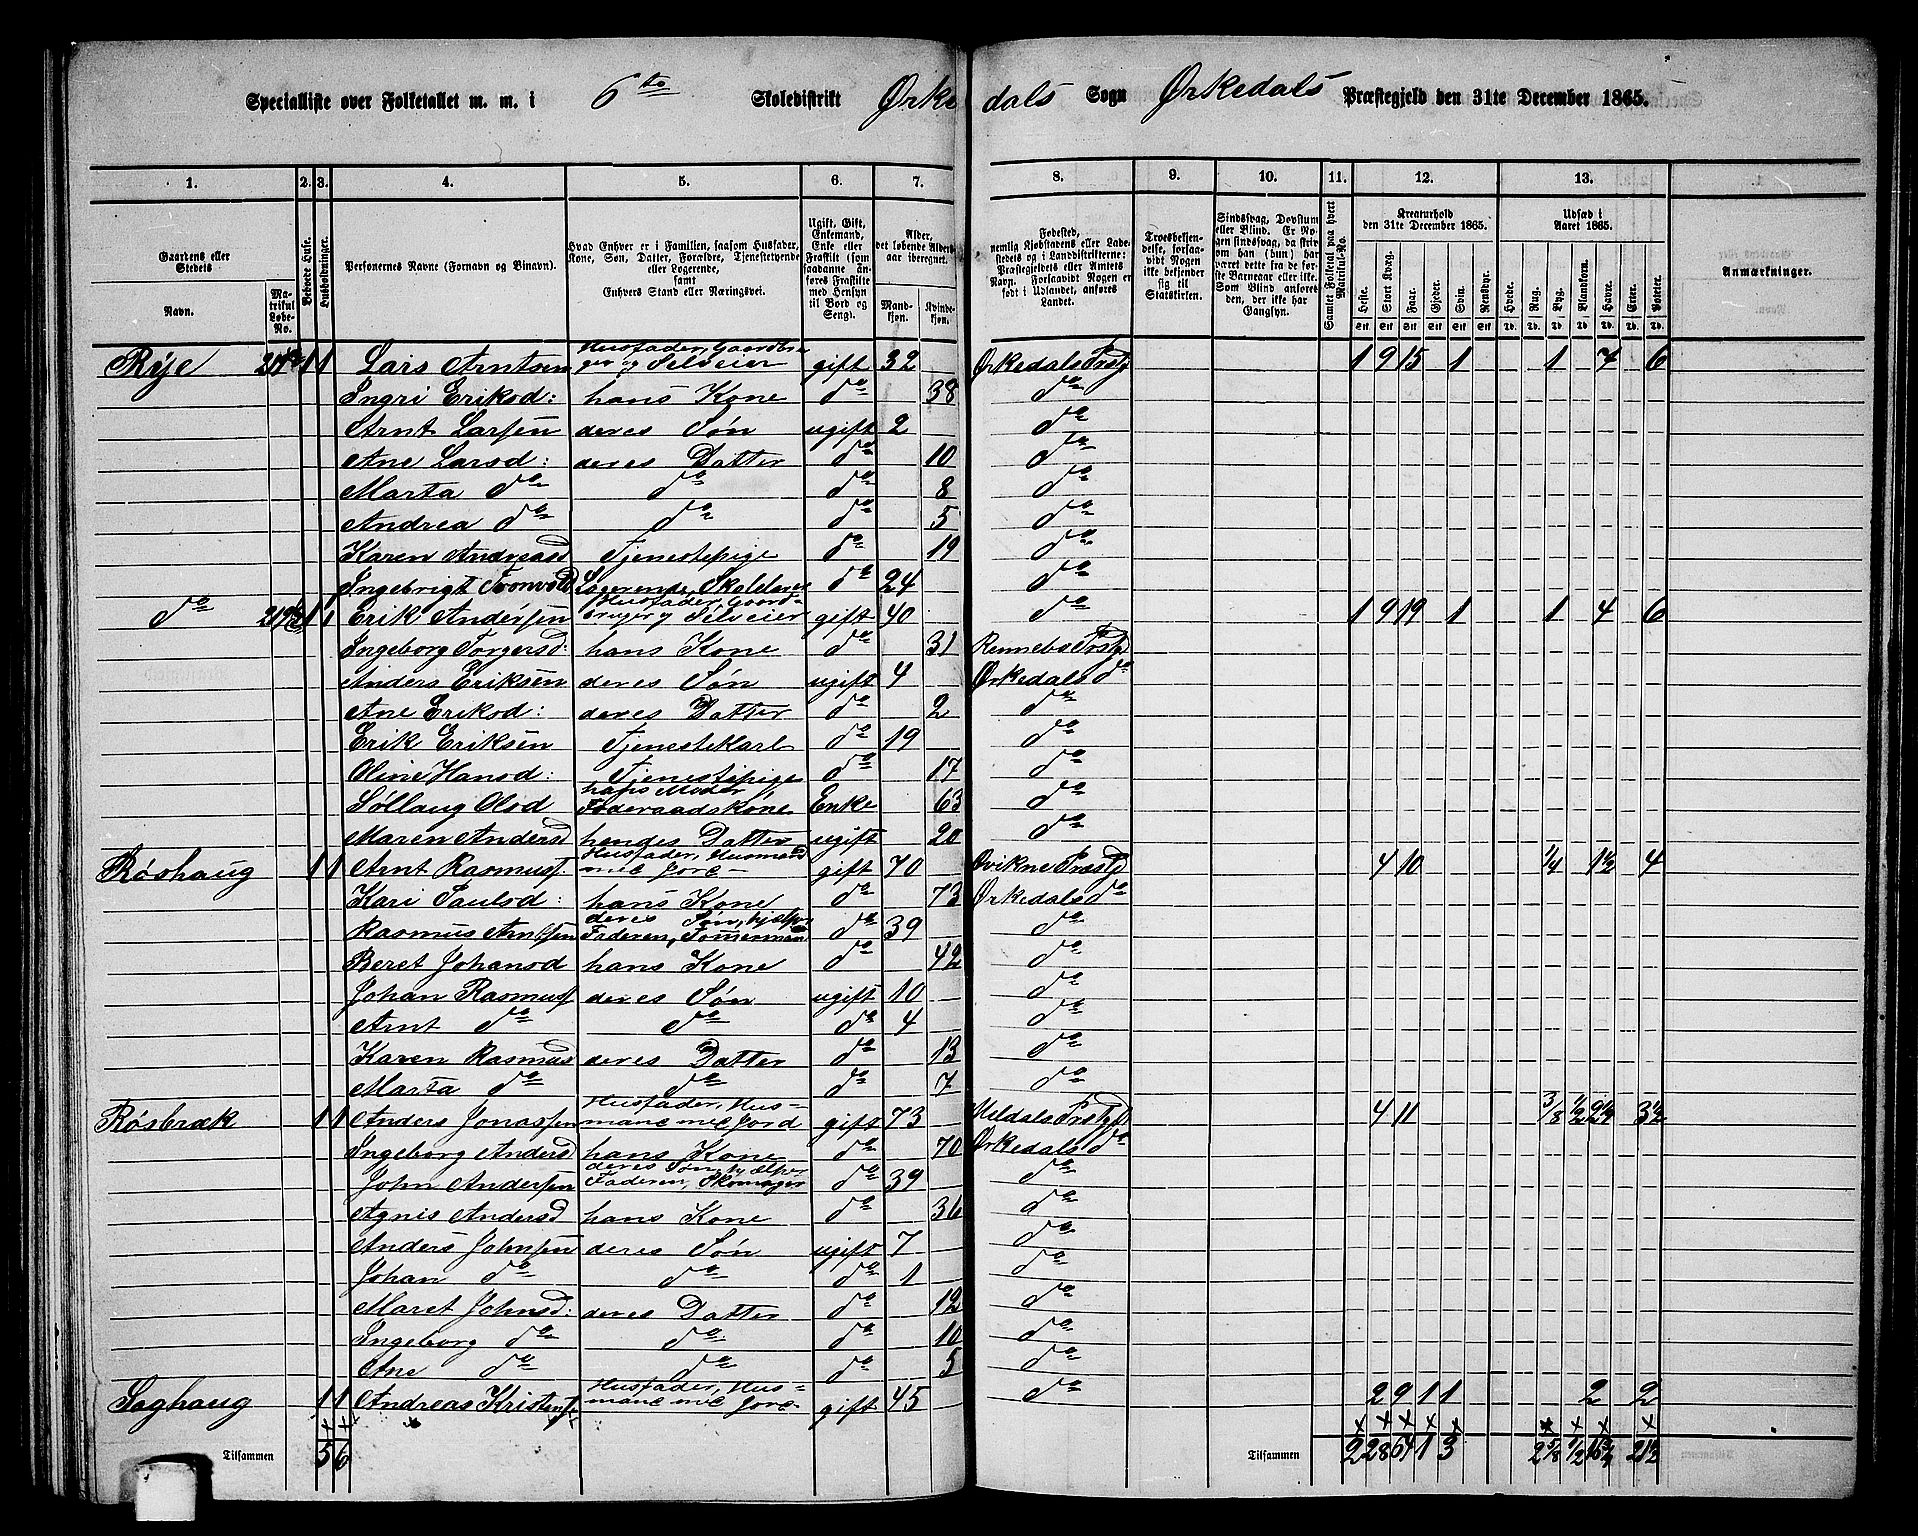 Specialliste over Folketallet m. m. i 6te Skoledistrikt Ørkedals Sogn Ørkedals Præstegjeld den 31te December 1865.
1. 2. 3. 4. 5. 6. 7. 8. 9. 10. 11. 12. 13.
Gaardens eller Stedets Navn. Matrikul Løbe-No. Beboede Huse. Husholdninger. Personernes Navne (Fornavn og Binavn). Hvad Enhver er i Familien, saasom Husfader, Kone, Søn, Datter, Forældre, Tjenestetyende eller Logerende, samt Enhvers Stand eller Næringsvei. Ugift, Gift, Enkemand, Enke eller Fraskilt (som saadanne anføres Fraskilte med Hensyn til Bord og Seng). Alder, det løbende Alders-aar iberegnet. Mandkjøn. Kvindekjøn.
Fødested, nemlig Kjøbstadens eller Ladestedets eller i Landdistrikterne: Præstegjeldets eller Amtets Navn. Forsaavidt Nogen er født i Udlandet, anføres Landet. Troesbekjendelse, forsaavidt Nogen ikke bekjender sig til Statskirken. Sindssvag, Døvstum eller Blind. Samlet Folketal paa hvert Matrikul-No. Kreaturhold den 31te December 1865. Heste. Stort Kvæg. Faar. Gjeder. Svin. Rensdyr. Udsæd i Aaret 1865. Hvede. Rug. Byg. Blandkorn. Havre. Erter. Poteter. Anmærkninger.
Rye 1 1 Lars Arntsen Husfader, Gaardbruger og Selveier gift 32 Ørkedals Prstgj 1 9 15 1 1 7 6
Ingri Eriksd: hans Kone do 38 do
Arnt Larsen deres Søn ugift 2 do
Ane Larsd: deres Datter do 10 do
Marta do do do 8 do
Andrea do do do 5 do
Karen Andreasd Tjenestepige do 19 do
Ingebrigt Logerende, Skolelærer do 24 do
do 1 1 Erik Andersen Husfader, Gaardbruger og Selveier gift 40 do 1 9 19 1 1 4 6
Ingeborg Torgersd: hans Kone do 31 Rennebo Prstgj
Anders Eriksen deres Søn ugift 4 Ørkedals do
Ane Eriksd: deres Datter do 2 do
Erik Eriksen Tjenestekarl do 19 do
Oline Hansd: Tjenestepige do 17 do
Søllaug Olsd hans Moder Føderaadskone Enke 63 do
Maren Andersd hendes Datter ugift 20 do
Røshaug 1 1 Arnt Rasmuss. Husfader, Husmand med Jord gift 70 Qvikne Præstgj 4 10 1/4 1 1/2 4
Kari Paulsd: hans Kone do 73 Ørkedals do
Rasmus Arntsen deres Søn, hjelper Faderen, Tømmermand do 39 do
Beret Johansd hans Kone do 42 do
Johan Rasmuss deres Søn ugift 10 do
Arnt do do do 4 do
Karen Rasmusd deres Datter do 13 do
Marta do do do 7 do
Røsbræk 1 1 Anders Jonassen Husfader, Husmand med Jord gift 73 Meldals Prstgjd 4 11 3/8 1/2 3 1/2
Ingeborg Andersd hans Kone do 70 Ørkedals do
John Andersen deres Søn hjælper Faderen, Skomager do 39 do
Agnis Andersd hans Kone do 36 do
Anders Johnsen deres Søn ugift 7 do
Johan do do do 1 do
Maret Johnsd: deres Datter do 12 do
Ingeborg do do do 10 do
Ane do do do 5 do
Saghaug 1 1 Andreas Kristens Husfader, Husmand med Jord gift 45 do 2 9 1 1 2 2
Tilsammen 5 6 Tilsammen 2 28 64 1 3 2 5/8 1/2 21 1/2